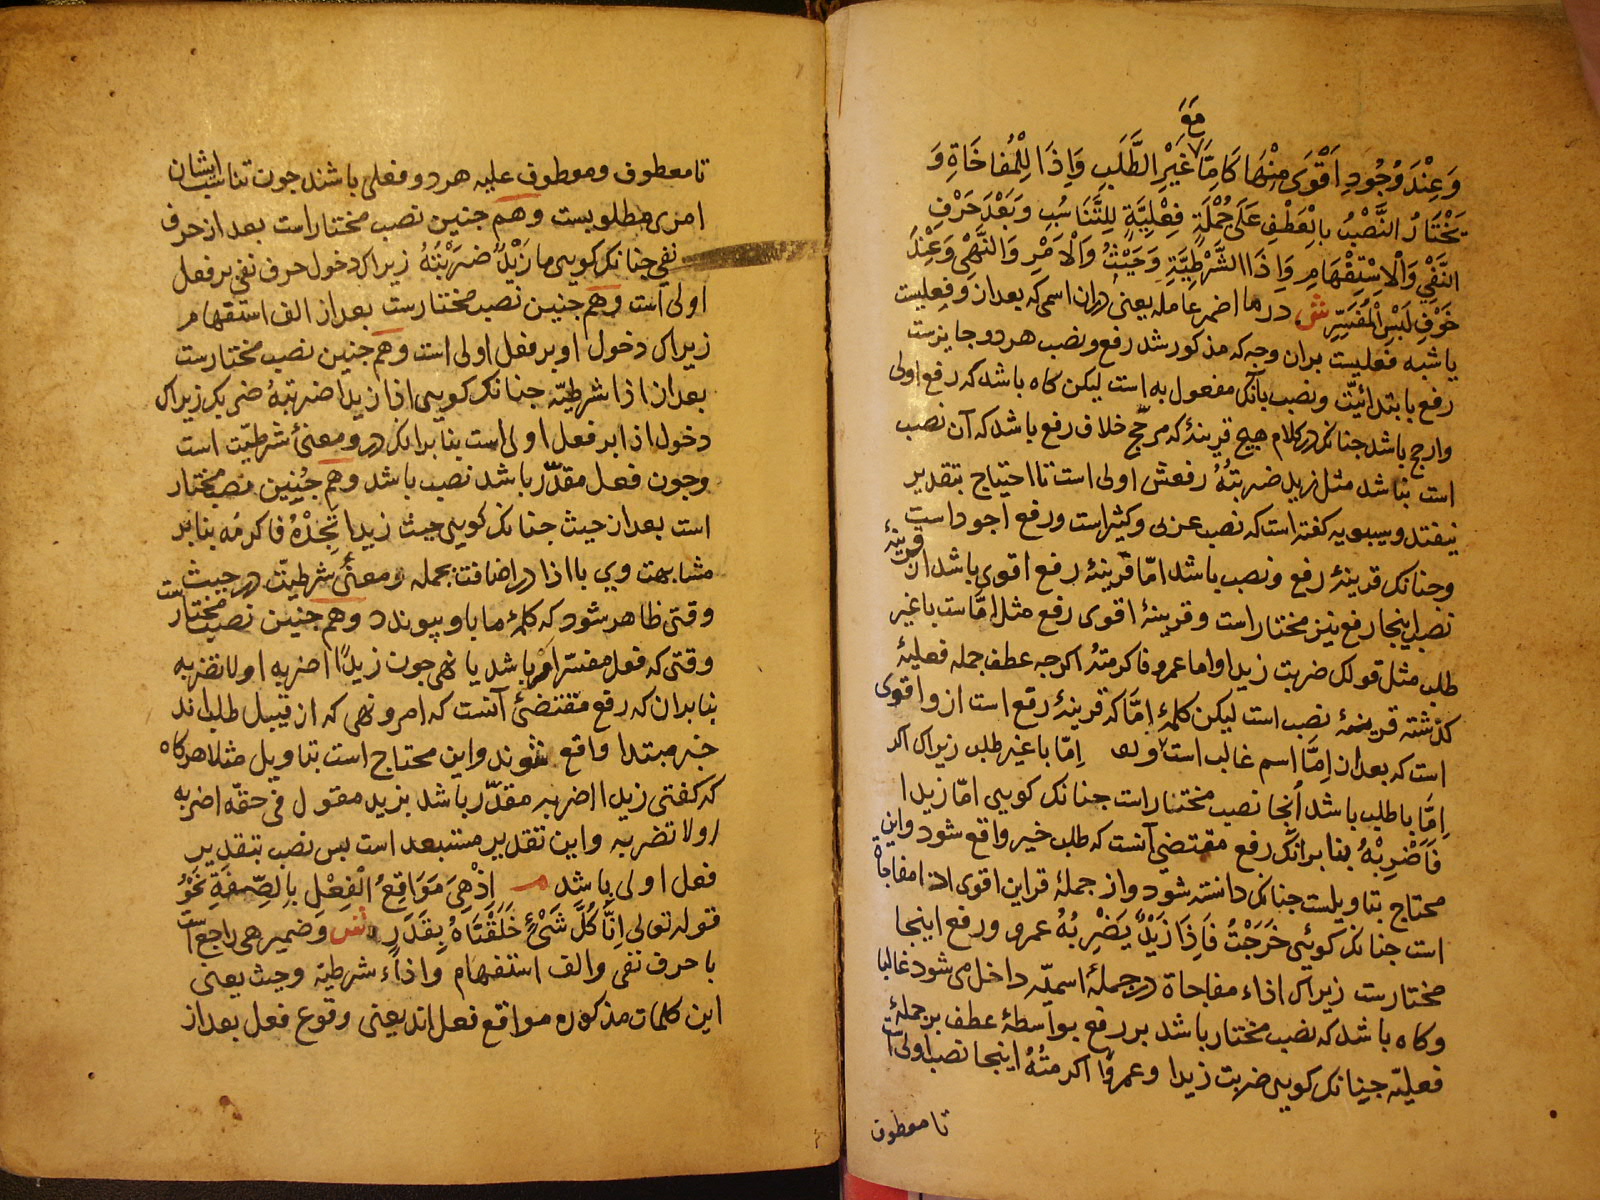 مَعَ
وَعِنْدَ وُجُودِ اَقْوَى مِنْهَا كَاِمَّا غَيْرِ الطَّلَبِ وَاِذَا لِلْمُفَاجَاةِ وَ
يَخْتَارُ النَّصْبُ بِالْعَطْفِ عَلَى جُمْلَةٍ فِعْلِيَّةٍ لِلتَّنَاسُبِ وَبَعْدَ حَرْفِ
النَّفْيِ وَالْاِسْتِفْهَامِ وَاِذَا الشَّرْطِيَّةِ وَحَيْثُ وَالْاَمْرِ وَالنَّهْيِ وَعِنْدَ
خَوْفِ لَبْسِ الْمُفَسِّرِ ش در ما اضمر عامله يعنى دران اسمى كه بعد ازو فعليست
يا شبه فعليست بران وجه كه مذكور شد رفع و نصب هر دو جايزست
رفع بابتدائيّت و نصب بآنك مفعول به است ليكن كاه باشد كه رفع اولى
وارجح باشد جنانك در كلام هيچ قرينهٔ كه مرجّح خلاف رفع باشد كه آن نصب
است نباشد مثل زيد ضربتُهُ رفعش اولى است تا احتياج بتقدير
نيفتد و سيبويه كفته است كه نصب عربى و كثيراست و رفع اجود است
وجنانك قرينهٔ رفع و نصب باشد امّا قرينهٔ رفع اقوى باشد از قرينهٔ
نصب اينجا رفع نيز مختار است و قرينهٔ اقوى رفع مثل امّاست با غير
طلب مثل قولك ضربت زيدا و اما عمرو فاكرمتهُ اكرجه عطف جمله فعليهٔ
كذشته قرينهٔ نصب است ليكن كلمهٔ اِمّا كه قرينهٔ رفع است ازو اقوى
است كه بعد از اِمّا اسم غالب است و اِمّا با غير طلب زيراك اكر
اِمّا با طلب باشد اُنجا نصب مختار است جنانك كويى امّا زيدا
فَاَضْرِبْهُ بنا برانك رفع مقتضى آنست كه طلب خبر واقع شود و اين
محتاج بتاويلست جنانك دانسته شود و از جملهٔ قراين اقوى اذا مفاجاة
است جنانك كوئى خَرَجْتُ فَاِذَا زَيْدٌ يَضْرِبُهُ عمرو و رفع اينجا
مختارست زيراك اذاء مفاجاة در جملهٔ اسميّه داخل مى شود غالبا
و كاه باشد كه نصب مختار باشد بر رفع بواسطهٔ عطف بر جملهٔ
فعليّه جنانك كويى ضربت زيدا و عمروًا اكرمتُهُ اينجا نصب اولى است
تا معطوف
تا معطوف و معطوف عليه هر دو فعلى باشند جون تناسب ايشان
امرى مطلوبست و هم جنين نصب مختار است بعد از حرف
نفى جنانك كويى ما زَيْدًا ضَرَبْتُهُ زيراك دخول حرف نفى بر فعل
اولى است و هم جنين نصب مختارست بعد از الف استفهام
زيراك دخول او بر فعل اولى است و هم جنين نصب مختارست
بعد از اذا شرطيّه جنانك كويى اذا زيدا ضربتهُ ضربك زيراك
دخول اذا بر فعل اولى است بنا برانك در و معنىٔ شرطيّت است
و جون فعل مقدّر باشد نصب باشد و هم جُنين نصب مختار
است بعد از حيث جنانك كويى حيث زيدا تجِدْهُ فاكرمه بنا بر
مشابهت وى با اذا در اضافت بجمله و معنىٔ شرطيّت در حيث
وقتى ظاهر شود كه كلمهٔ ما با و پيوندد و هم جنين نصب مختار است
وقتى كه فعل مفسّر امر باشد يا نهى جون زيدًا اضربه او لا تضربه
بنا بدان كه رفع مقتضىٔ آنست كه امر و نهى كه از قبيل طلب اند
خبر مبتدا واقع شوند و اين محتاج است بتاويل مثلا هر كاه
كه كفتى زيد ااضربه مقدّر باشد بزيد مقول فى حقّه اضربه
او لا تضربه و اين تقدير مستبعد است بس نصب بتقدير
فعل اولى باشد م اِذْ هِىَ مَوَاقِعُ الْفِعْلِ بِالصِّفَةِ نَحْوُ
قوله تعالى اِنَّا كُلَّ شَىْءٍ خَلَقْنَاهُ بِقَدَرٍ ش و ضمير هى راجع است
با حرف نفى و الف استفهام و اذاء شرطيّه و حيث يعنى
اين كلمات مذكوره مواقع فعل اند يعنى وقوع فعل بعد از